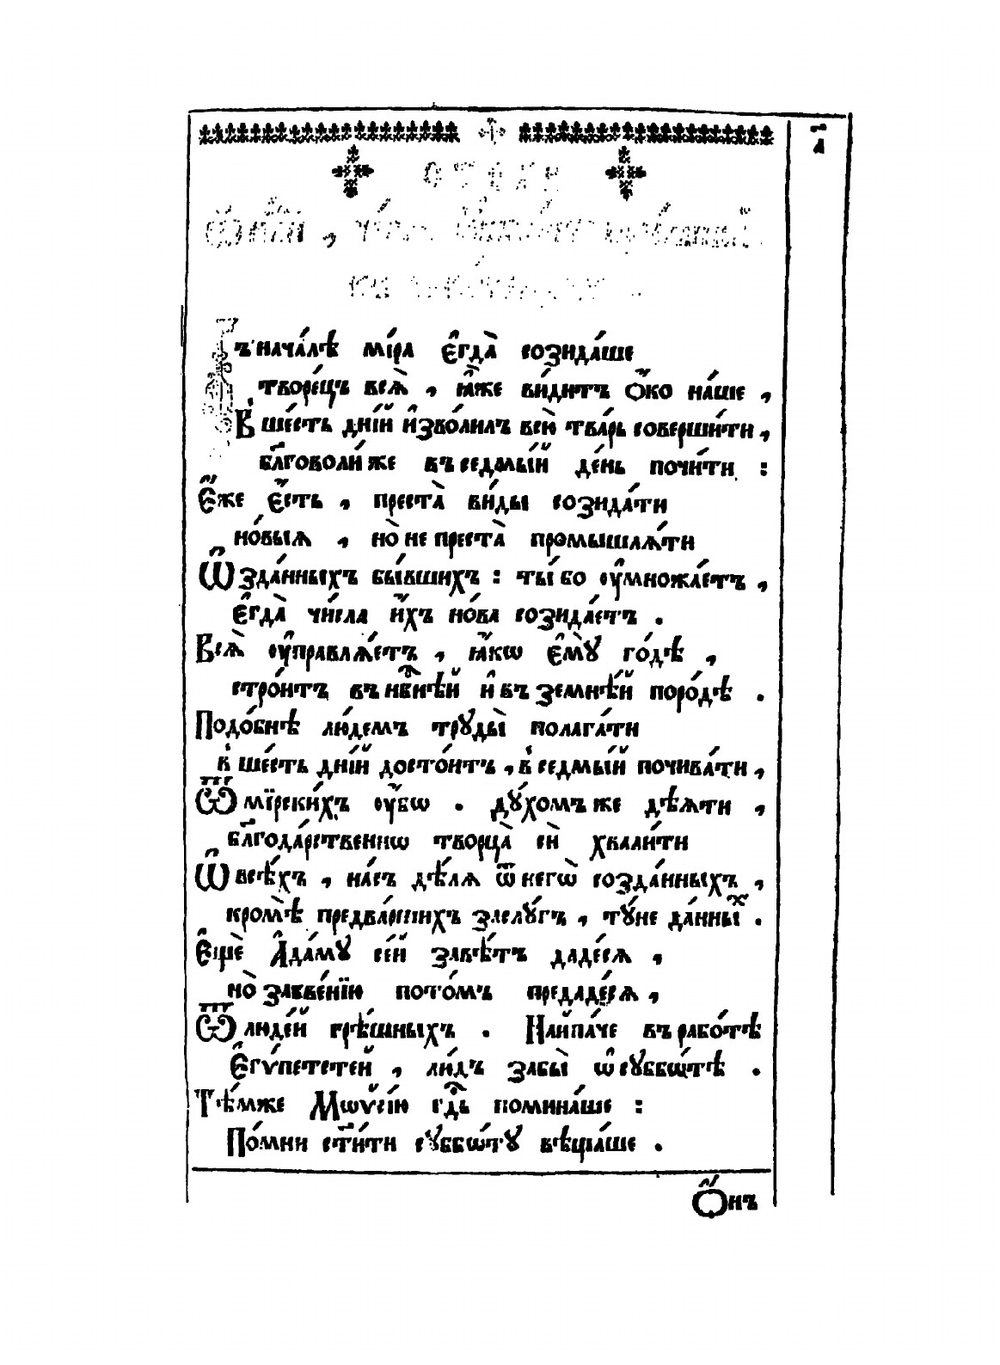 а҃
Въ нача́лѣ мі́ра є҆гда̀ созида́ше
творе́цъ всѧ̑ , ꙗ҆̀же ви́дитъ ѻ҆́ко на́ше ,
В̾ ше́сть дні́й и҆зво́лилъ всю̀ тва́рь соверши́ти ,
бл҃говоли́ же въ седмы́й де́нь почи́ти :
Є҆́же є҆́сть , преста̀ ви́ды созида́ти
но́выѧ , но̀ не преста̀ промышлѧ́ти
Ѽ зда́нныхъ бы́вшихъ : ты́ бо ᲂу҆множа́етъ ,
є҆гда̀ числа̀ и҆́хъ но́ва созида́етъ .
Всѧ̑ ᲂу҆правлѧ́етъ , ꙗ҆́кѡ є҆мꙋ̀ го́дѣ ,
стро́итъ въ нб҃нѣй и҆ въ земнѣ́й поро́дѣ .
Подо́бнѣ лю́демъ трꙋды̀ полага́ти
в̾ ше́сть дні́й досто́итъ , в̾ седмы́й почива́ти ,
Ѿ мїрски́хъ ᲂу҆́бѡ . дꙋ́хомъ же дѣ́ѧти ,
бл҃года́рственнѡ творца̀ сѝ хвали́ти
Ѽ всѣ́хъ , на́съ дѣ́лѧ ѿ негѡ̀ созда́нныхъ ,
кромѣ̀ предва́ршихъ заслꙋ́гъ , тꙋ́не да́нныⷯ .
Є҆щѐ А҆да́мꙋ се́й завѣ́тъ даде́сѧ ,
но̀ забве́нїю пото́мъ предаде́сѧ ,
Ѿ люде́й грѣ́шныхъ . Наипа́че въ рабо́тѣ
Є҆гѵ́петстей , лю́дъ забы̀ ѡ҆ сꙋббѡ́тѣ .
Тѣ́мже Мѡѷсі́ю гдⷭ҇ь помина́ше :
По́мни ст҃и́ти сꙋббѡ́тꙋ вѣща́ше .
Ѻ҆́нъ